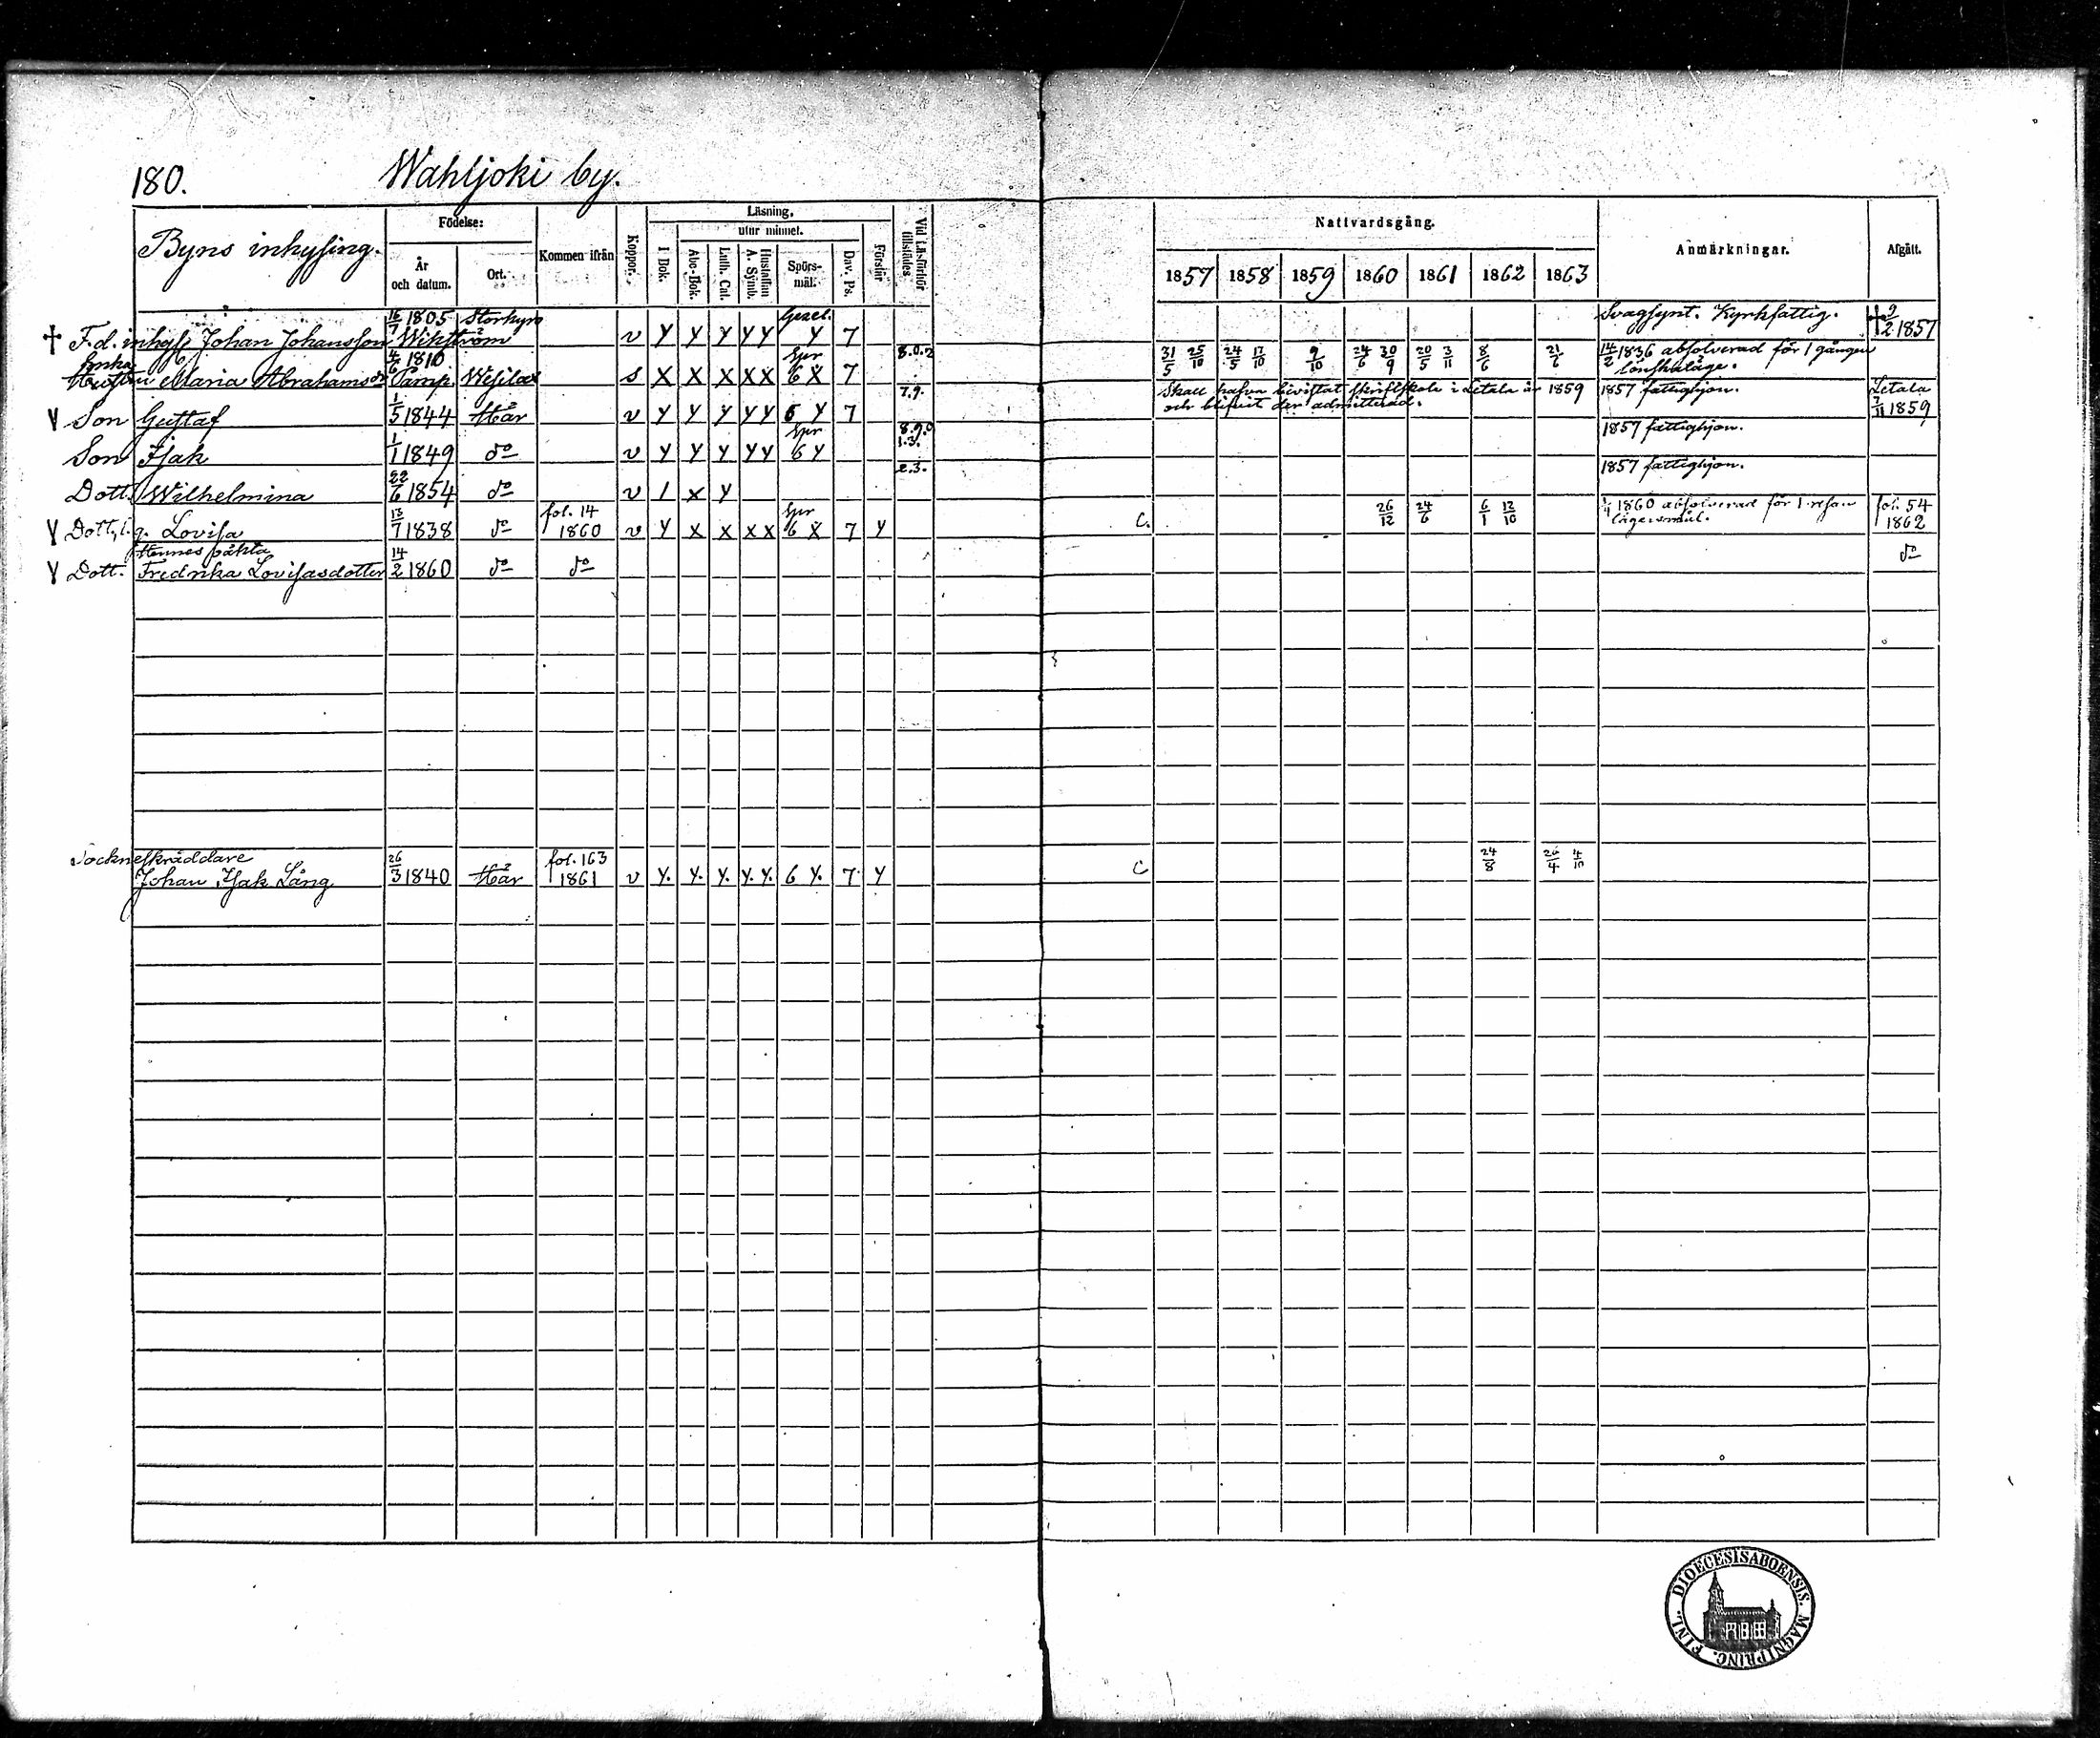 180. Wahljoki by.
Byns inhysing.
Födelse:
År och datum.
Ort.
Kommen ifrån
Koppor.
Läsning.
utur minnet.
I Bok.
Abc-Bok.
Luth. Cat.
Hustaflan A. Symb.
Spörsmål.
Dav. Ps.
Förstår
Vid Läsförhör tillstädes
Nattvardsgång.
1857 1858 1859 1860 1861 1862 1863
Anmärkningar.
Afgått.
16/7 1805 Storkyro Svagsynt. Kyrkfattig.
† F.d. inhys. Johan Johansson Wikström v Y Y Y Y Y Y 7 † 9/2 1857
Enka 4/6 1810 Spr 8.0.2 31/5 25/10 24/5 17/10 9/10 24/6 30/9 20/5 3/11 8/6 21/6 14/2 1836 absolverad för 1 gången
Hustrun Maria Abrahamsdr Samp. Wesilax s X X X X X 6 X 7 lönskaläge.
7.9. Skall hafva bivistat skriftskola i Letala år 1859 1857 fattighjon. Letala
Y Son Gustaf 1/5 1844 Här v Y Y Y Y Y 6 Y 7 och blifvit der admitterad. 7/11 1859
Spr 8.9.0 1857 fattighjon.
Son Isak 1/1 1849 do v Y Y Y Y Y 6 Y 1.3.
2.3. 1857 fattighjon.
Dott. Wilhelmina 22/6 1854 do v 1 x Y
fol. 14 Spr 26/12 24/6 6/1 12/10 1/4 1860 absolverad för 1 resan fol. 54
Y Dott, Lovisa 13/7 1838 do 1860 v Y X X X X 6 X 7 Y C. lägersmål. 1862
Hennes oäkta
Y Dott. Fredrika Lovisasdotter 14/2 1860 do do do
Sockneskräddare fol. 163 24/8 26/4 4/10
Johan Isak Lång 26/3 1840 Här 1861 v Y. Y. Y. Y. Y. 6 Y. 7 Y C
FINL. DIOECESIS ABOENSIS. MAGNI PRINC.